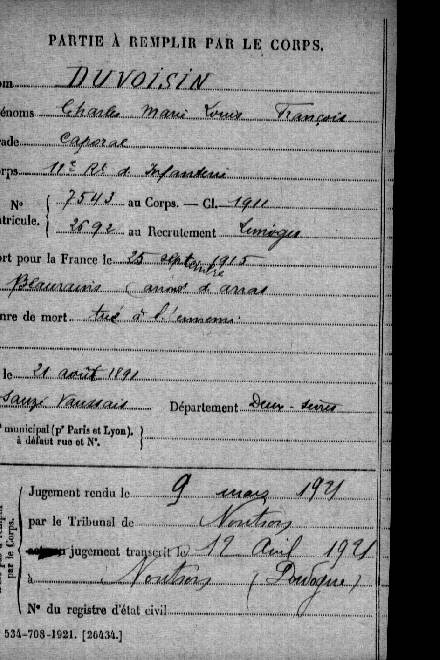 PARTIE À REMPLIR PAR LE CORPS.
om DUVOISIN
énoms Charles Marie Louis François
rade Caporal
orps d'Infanterie
N° 7543 au Corps. — Cl. 1911
atricule. 2692 au Recrutement Limoges
ort pour la France le 25 septembre 1915
Beaurains d'arras
nre de mort tué à l'ennemi
le 21 août 1891
Sauzé Vaussais Département Deux-Sèvres
municipal (pr Paris et Lyon).
à défaut rue et N°.
Jugement rendu le 9 mars 1921
par le Tribunal de Nontron
par le Corps.
jugement transcrit le 12 Avril 1921
à Nontron (Dordogne)
N° du registre d'état civil
534-708-1921. [26434.]